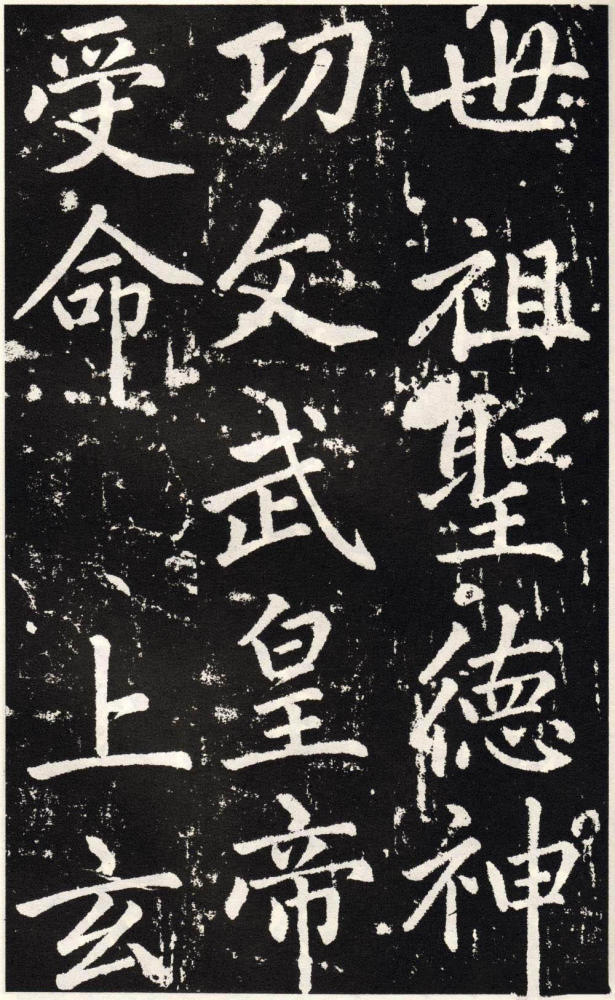 世祖聖德神
功文武皇帝
受命上玄